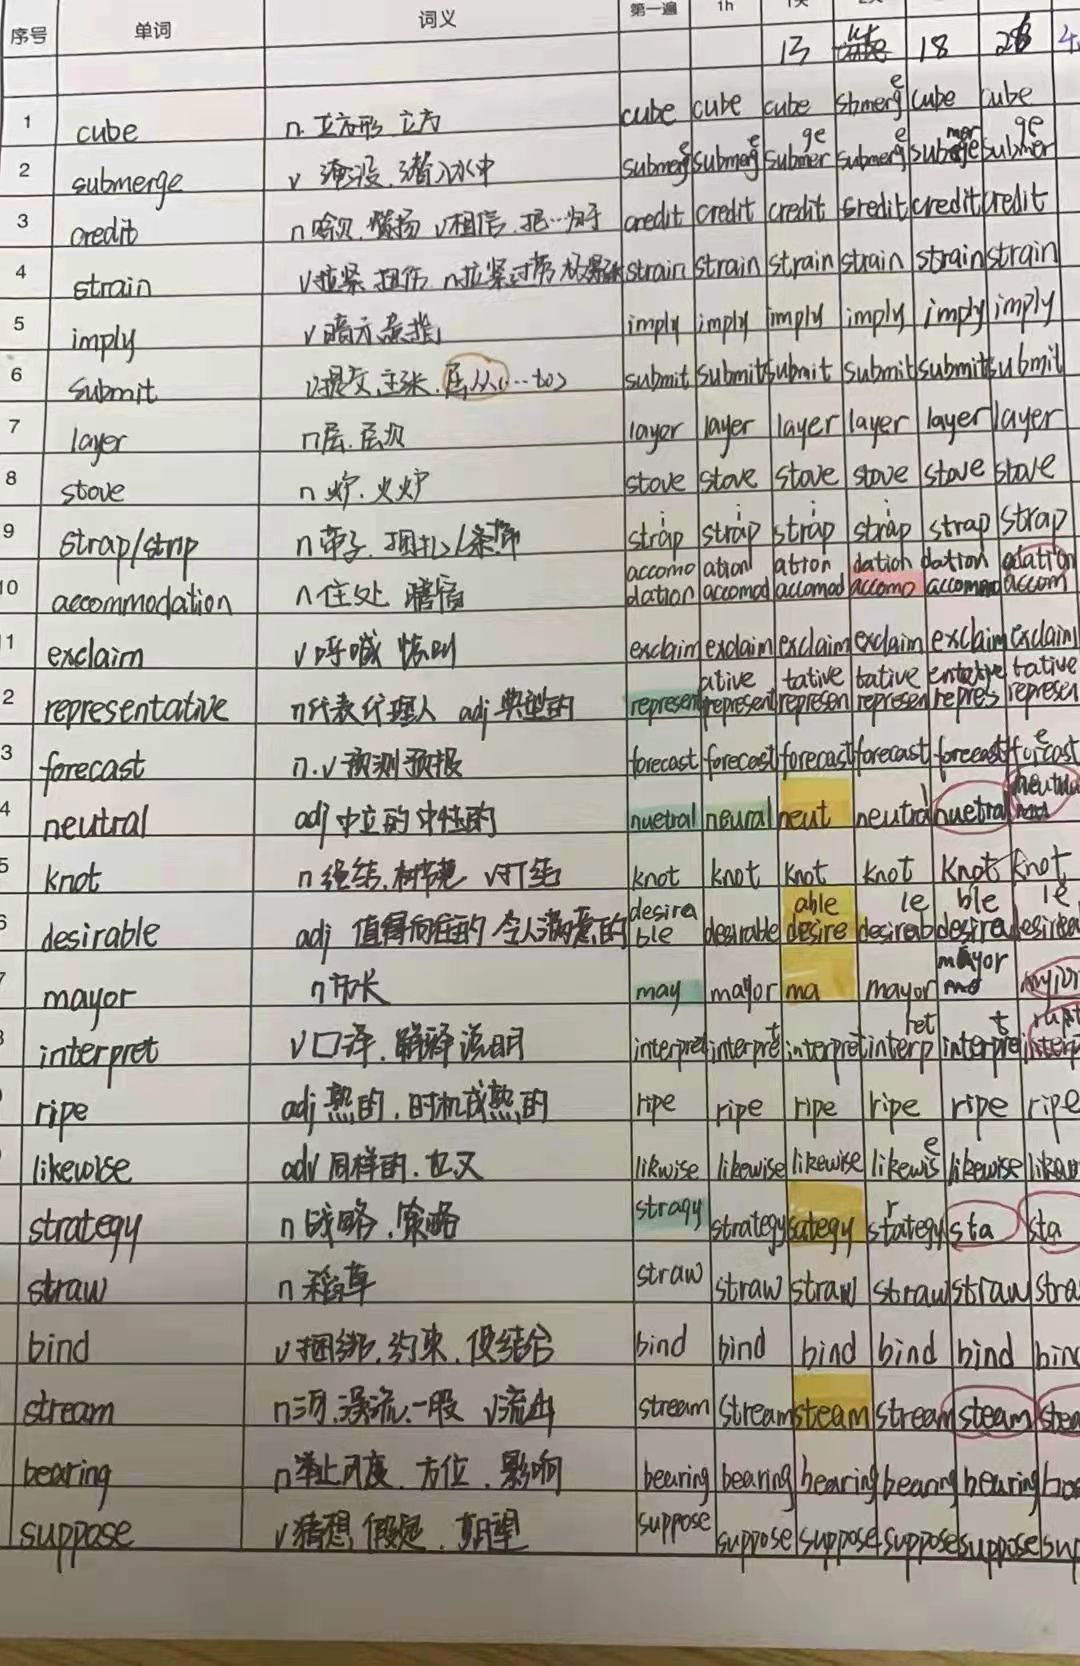 序号 单词 词义 第一遍 1h 1天
13 18 28 4
1 cube n. 立方形 立方 cube cube cube sbmerge cube cube
2 submerge v 淹没. 潜入水中 submerge submerge submerge submerge submerge submerge
3 credit n 赞扬 v相信. 把…归于 credit credit credit credit credit credit
4 strain v拉紧 扭伤 n拉紧 strain strain strain strain strain strain
5 imply v 暗示 imply imply imply imply imply imply
6 submit v提交. 主张. 屈从(…to) submit submit submit submit submit submit
7 layer n层. 层次 layer layer layer layer layer layer
8 stove n 炉. 火炉 stove stove stove stove stove stove
9 strap/strip n 带子. 捆扎/条带 strap strap strap strap strap strap
10 accommodation n 住处 膳宿 accomodation accomodation accomodation accomodation accommodation
11 exclaim v呼喊 惊叫 exclaim exclaim exclaim exclaim exclaim exclaim
2 representative n代表代理人 adj 典型的 represent representative representative representative representative representative
3 forecast n. v 预测 预报 forecast forecast forecast forecast forecast forecast
4 neutral adj 中立的 中性的 nuetral neural neut neutral nuetral
5 knot n 绳结. 树节疤 v打结 knot knot knot knot knot knot
6 desirable adj 值得向往的 令人满意的 desirable desirable desireable desireable desireable
7 mayor n市长 may mayor ma mayor mayor
8 interpret v口译. 解释 说明 interpret interpret interpret interpret interpret
ripe adj 熟的. 时机成熟的 ripe ripe ripe ripe ripe ripe
likewise adv 同样的. 也又 likwise likewise likewise likewise likewise
strategy n 战略. 策略 stragy strategy sategy strategy sta sta
straw n 稻草 straw straw straw straw straw stra
bind v捆绑. 约束. 使结合 bind bind bind bind bind bin
stream n河. 溪流. 一股 v流出 stream stream steam stream steam stea
bearing n举止风度. 方位. 影响 bearing bearing bearing bearing bearing
suppose v猜想 假定. 期望 suppose suppose suppose suppose suppose sup